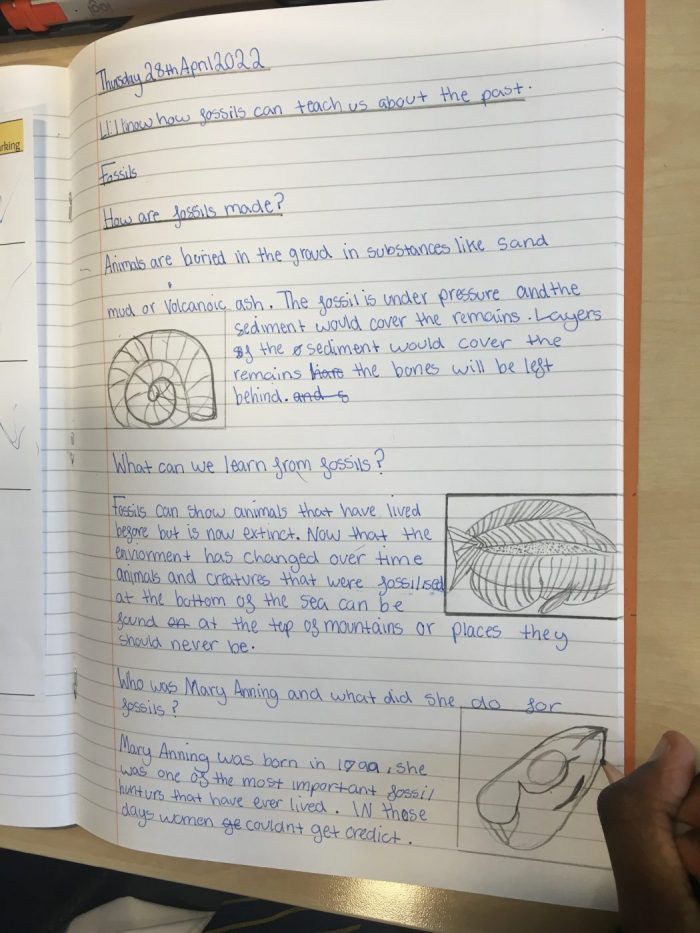 Thursday 28th April 2022
LI: I know how fossils can teach us about the past.
Fossils
How are fossils made?
Animals are buried in the groud in substances like sand
mud or Volcanoic ash. The fossil is under pressure and the
sediment would cover the remains. Layers
of the sediment would cover the
remains the bones will be left
behind. and s
What can we learn from fossils?
Fossils can show animals that have lived
before but is now extinct. Now that the
enviorment has changed over time
animals and creatures that were fossilised
at the bottom of the sea can be
found on at the top of mountains or places they
should never be.
Who was Mary Anning and what did she do for
fossils?
Mary Anning was born in 1799, she
was one of the most important fossil
hunturs that have ever lived. IN those
days women couldnt get credict.
rking